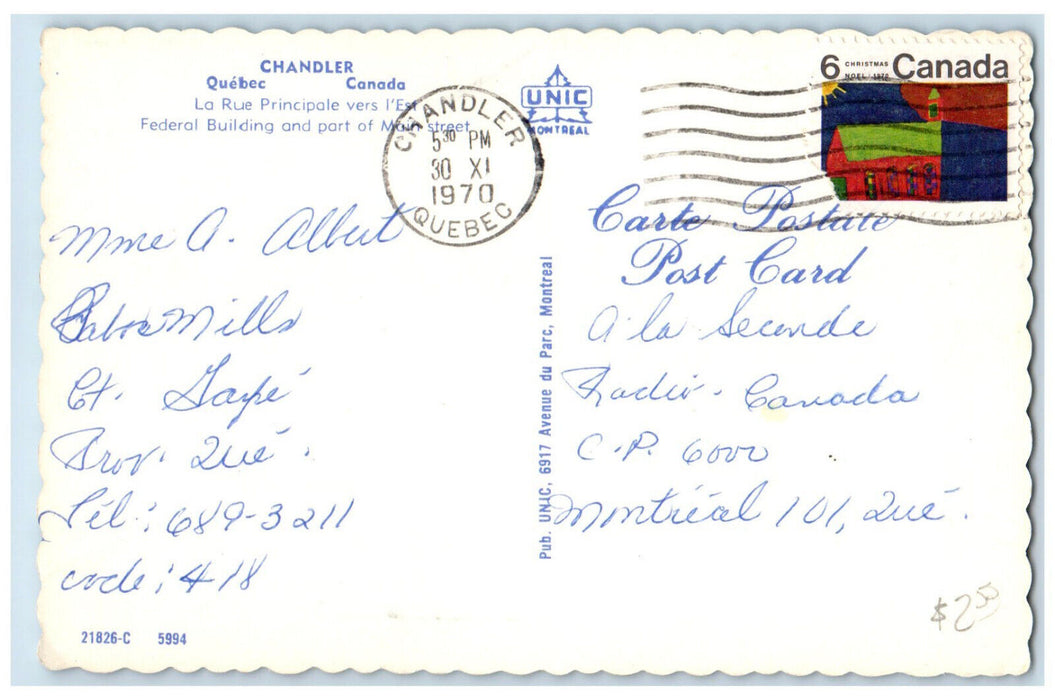 CHANDLER
Québec Canada
La Rue Principale vers l'Est
Federal Building and part of Main street
UNIC
MONTREAL
CHANDLER
5³⁰ PM
30 XI
1970
QUEBEC
6 CHRISTMAS NOEL 1970 Canada
Carte Postale
Post Card
Mme A. Albert
Pabos Mills
Ct. Gaspé
Prov. Qué.
Tél.: 689-3211
code: 418
Pub. UNIC, 6917 Avenue du Parc, Montreal
A la Seconde
Radio-Canada
C.P. 6000
Montréal 101, Qué.
$2.50
21826-C 5994